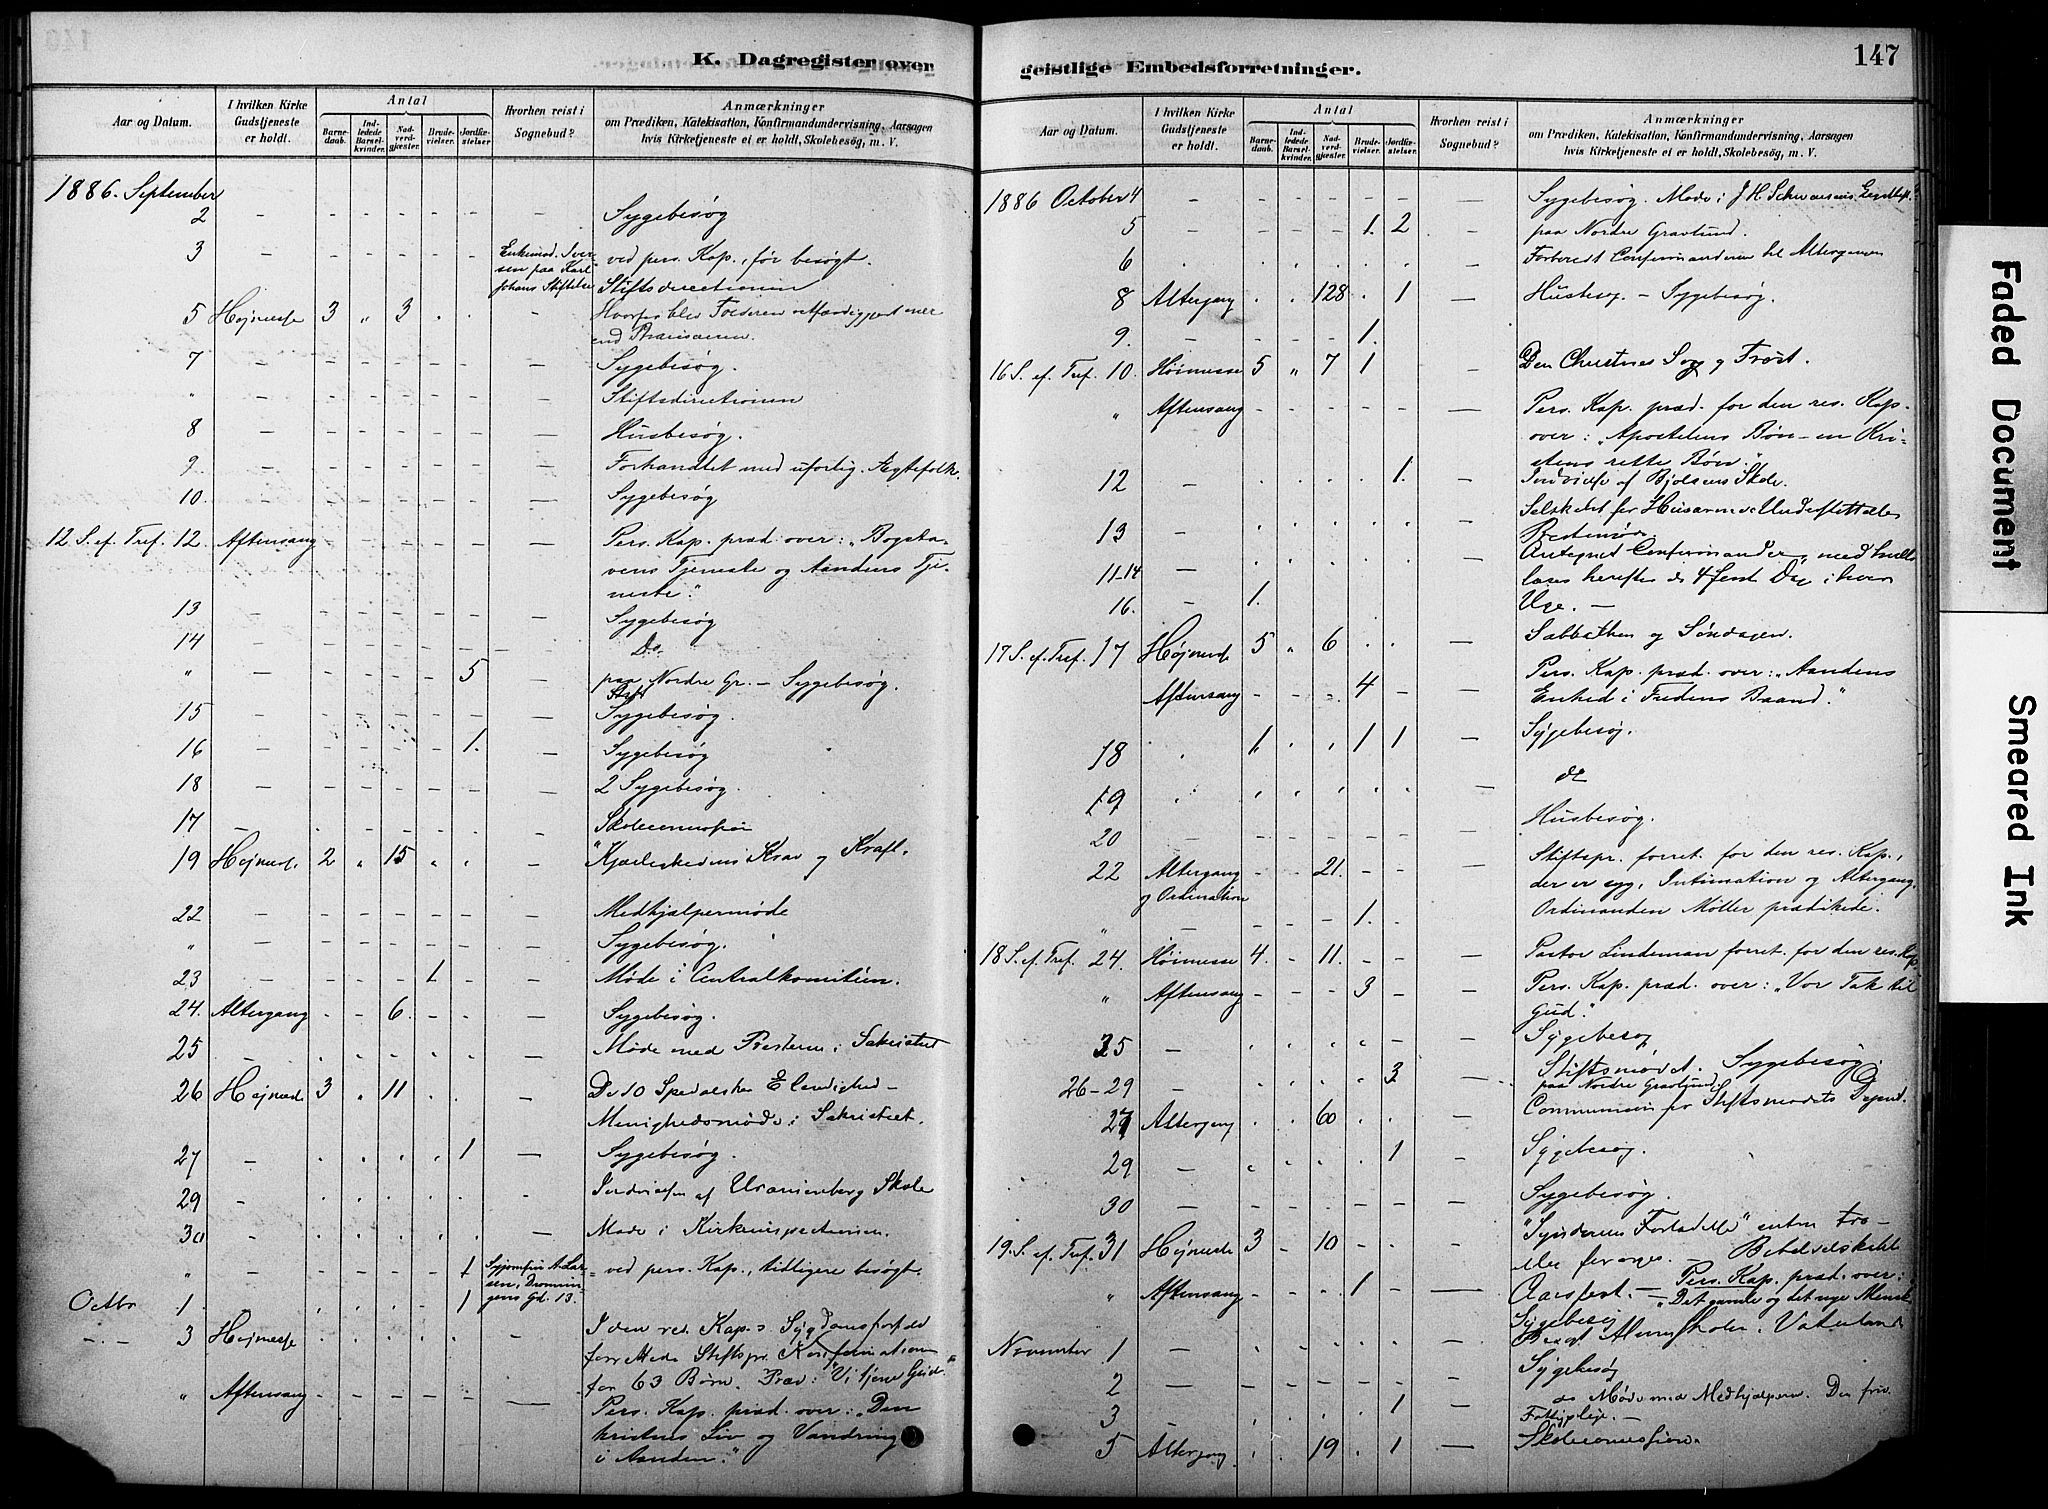 K. Dagregister over
geistlige Embedsforretninger.
147
Aar og Datum.
I hvilken Kirke Gudstjeneste er holdt.
Antal
Barnedaab.
Indledede Barselkvinder.
Nadverdgjæster.
Brudevielser.
Jordfæstelser.
Hvorhen reist i Sognebud?
Anmærkninger
om Prædiken, Katekisation, Konfirmandundervisning, Aarsagen
hvis Kirketjeneste ei er holdt, Skolebesøg, m. V.
1886. September
2 - - - - - - - Sygebesøg
3 - - - - - - ved pers. Kap., før besøgt.
sen paa Karl
Johans Stiftelse Stiftsdirectionen
5 Højmesse 3 " 3 . . -
7 - - - - - - - Sygebesøg.
" - - - - - - - Stiftsdirectionen
8 - - - - - - - Husbesøg.
9 - - - - - - - Forhandlet med uforlig. Ægtefolk.
10. - - - - - - - Sygebesøg
12 S. ef. Tref. 12. Aftensang - - - - - - Pers. Kap. præd. over: „Bogsta-
vens Tjeneste og Aandens Tje-
neste."
13 - - - - - - - Sygebesøg
14 - - - - - - - Do
" - - - - - 5 - paa Nordre Gr. - Sygebesøg.
15 - - - - - - - Sygebesøg.
16 - - - - - 1. - Sygebesøg
18 - - - - - - - 2 Sygebesøg.
17 - . . . . . -
19 Højmesse 2 " 15 . . - Krav og Kraft.
22 - - - - - - - Medhjælpermøde
" - - - - - - - Sygebesøg.
23 - - - - 1 - - Møde i Centralkomitéen.
24. Altergang - - 6. - - - Sygebesøg.
25 - . . . . . - Møde med Presterne i Sakristiet
26 Højmesse 3 . 11 . . - De 10 Spedalske Elendighed -
Menighedsmøde i Sakristiet.
27 - . . . . 1 - Sygebesøg.
29 - . . . . . - af Uranienborg Skole
30 - . . . . . - Møde i Kirkeinspectionen.
" . . . . . 1 ved pers. Kap., tidligere besøgt.
gens Gd. 13.
Octbr 1 . . . . . 1
3 Højmesse . . . . . I den res. Kap.s Sygdomsforfald
Stiftspr. Konfirmation
for 63 Børn. Præd: "Vi tjene Gud."
" Aftensang - - - - - - Pers. Kap. præd. over: „Den
kristnes Liv og Vandring
i Aanden."
Aar og Datum.
I hvilken Kirke Gudstjeneste er holdt.
Antal
Barnedaab.
Indledede Barselkvinder.
Nadverdgjæster.
Brudevielser.
Jordfæstelser.
Hvorhen reist i Sognebud?
Anmærkninger
om Prædiken, Katekisation, Konfirmandundervisning, Aarsagen
hvis Kirketjeneste ei er holdt, Skolebesøg, m. V.
1886 October 4 - - - - - - - Sygebesøg. Møde i J. H.
5 - - - - 1. 2 - paa Nordre Gravlund.
6 . . . . . . - Forberedt Confirmanderne til Altergangen
8 Altergang . . 128 . 1 - Husbesøg - Sygebesøg.
9. - - - - 1.
16 S. ef. Tref. 10. Høimesse 5 " 7 1 . - Den Christnes Sorg og Trøst.
" Aftensang - - - - - - Pers. Kap. præd. for den res. Kap.
over: „Apostelens Bøn - en Kri-
stens rette Bøn."
12 - . . . . 1. - Indvielse af Bjølsens Skole.
13 - . . . . . - Selskabet for
11-14 - . . . . . -
16. - 1. Uge. -
17 S. ef. Tref. 17 Højmesse 5 . 6 . . - Sabbathen og Søndagen.
Aftensang - - - 4 - - Pers. Kap. præd. over: „Aandens
Enhed i Fredens Baand."
18 . 1 . . 1 1 - Sygebesøg.
19 . . . . . . - do
20 - - - - - - - Husbesøg.
22 Altergang - - 21. - - - Stiftspr. forret. for den res. Kap.,
og Ordination der er syg, Intimation og Altergang.
" - - - 1. - - Ordinanden Möller prædikede.
18 S. ef. Tref. 24. Høimesse 4. - 11. - - - Pastor Lindeman forret. for den res. Kap.
" Aftensang - - - 3 - - Pers. Kap. præd. over: „Vor Tak til
Gud."
25 - . . . . . - Sygebesøg
26-29 - . . . . 3 - Stiftsmødet. Sygebesøg.
paa Nordre Gravlund.
27 Altergang . . 60 . . - Stiftsmødets
29 - . . . . 1 - Sygebesøg.
30 - - - - - - - Sygebesøg.
19. S. ef. Tref. 31 Højmesse 3 - 10 - - - "Syndernes Forladelse"
" Aftensang - - - 1 - - Aarsfest. - Pers. Kap. præd. over:
„Det gamle og det nye Mensk
November 1 - . . . . . - Sygebesøg
2 - - - - - - - Sygebesøg
3 - . . . . 1 - do Møde med Medhjælperne. Den friv.
5 Altergang . . 19 . 1 -
Faded Document
Smeared Ink